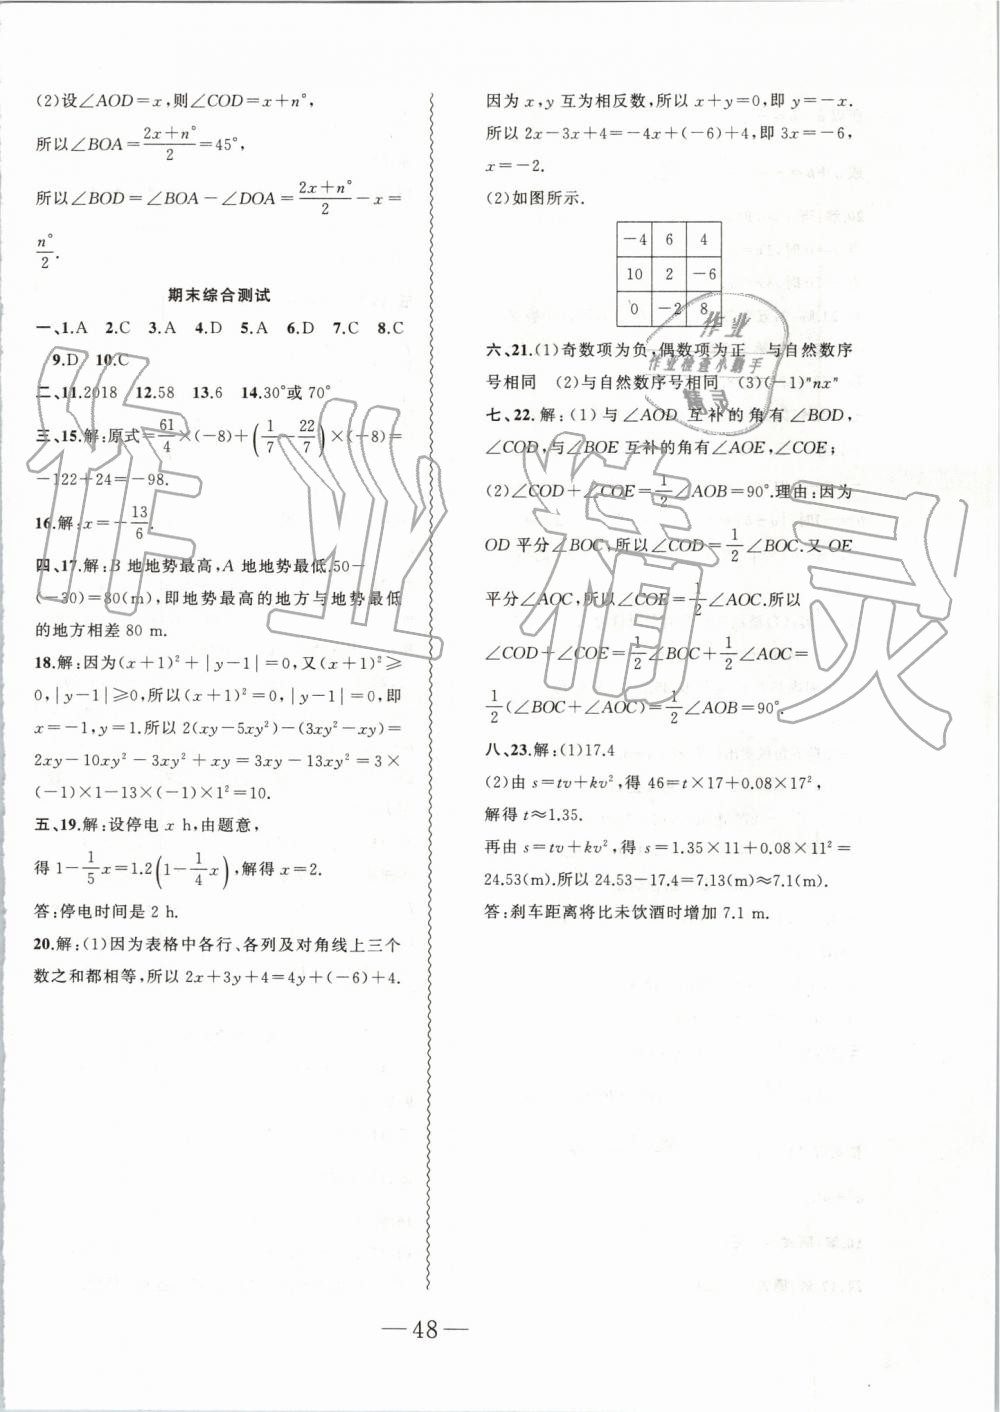 (2)设∠AOD=x,则∠COD=x+n°,
所以∠BOA=(2x+n°)/2=45°,
所以∠BOD=∠BOA-∠DOA=(2x+n°)/2-x=
n°/2.
期末综合测试
一、1.A 2.C 3.A 4.D 5.A 6.D 7.C 8.C
9.D 10.C
二、11.2018 12.58 13.6 14.30°或70°
三、15.解:原式=61/4×(-8)+(1/7-22/7)×(-8)=
-122+24=-98.
16.解:x=-13/6.
四、17.解:B地地势最高,A地地势最低.50-
(-30)=80(m),即地势最高的地方与地势最低
的地方相差80 m.
18.解:因为(x+1)²+|y-1|=0,又(x+1)²≥
0,|y-1|≥0,所以(x+1)²=0,|y-1|=0,即
x=-1,y=1.所以2(xy-5xy²)-(3xy²-xy)=
2xy-10xy²-3xy²+xy=3xy-13xy²=3×
(-1)×1-13×(-1)×1²=10.
五、19.解:设停电x h,由题意,
得1-1/5x=1.2(1-1/4x),解得x=2.
答:停电时间是2 h.
20.解:(1)因为表格中各行、各列及对角线上三个
数之和都相等,所以2x+3y+4=4y+(-6)+4.
因为x,y互为相反数,所以x+y=0,即y=-x.
所以2x-3x+4=-4x+(-6)+4,即3x=-6,
x=-2.
(2)如图所示.
-4 6 4
10 2 -6
0 -2 8
六、21.(1)奇数项为负,偶数项为正 与自然数序
号相同 (2)与自然数序号相同 (3)(-1)ⁿnxⁿ
七、22.解:(1)与∠AOD互补的角有∠BOD,
∠COD,与∠BOE互补的角有∠AOE,∠COE;
(2)∠COD+∠COE=1/2∠AOB=90°.理由:因为
OD平分∠BOC,所以∠COD=1/2∠BOC.又OE
平分∠AOC,所以∠COE=1/2∠AOC.所以
∠COD+∠COE=1/2∠BOC+1/2∠AOC=
1/2(∠BOC+∠AOC)=1/2∠AOB=90°.
八、23.解:(1)17.4
(2)由s=tv+kv²,得46=t×17+0.08×17²,
解得t≈1.35.
再由s=tv+kv²,得s=1.35×11+0.08×11²=
24.53(m).所以24.53-17.4=7.13(m)≈7.1(m).
答:刹车距离将比未饮酒时增加7.1 m.
作业精灵
作业
作业检查小助手
精灵
— 48 —